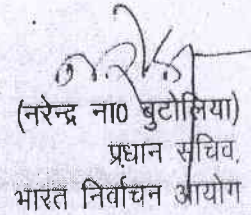 (नरेन्द्र ना0 बुटोलिया)
प्रधान सचिव,
भारत निर्वाचन आयोग